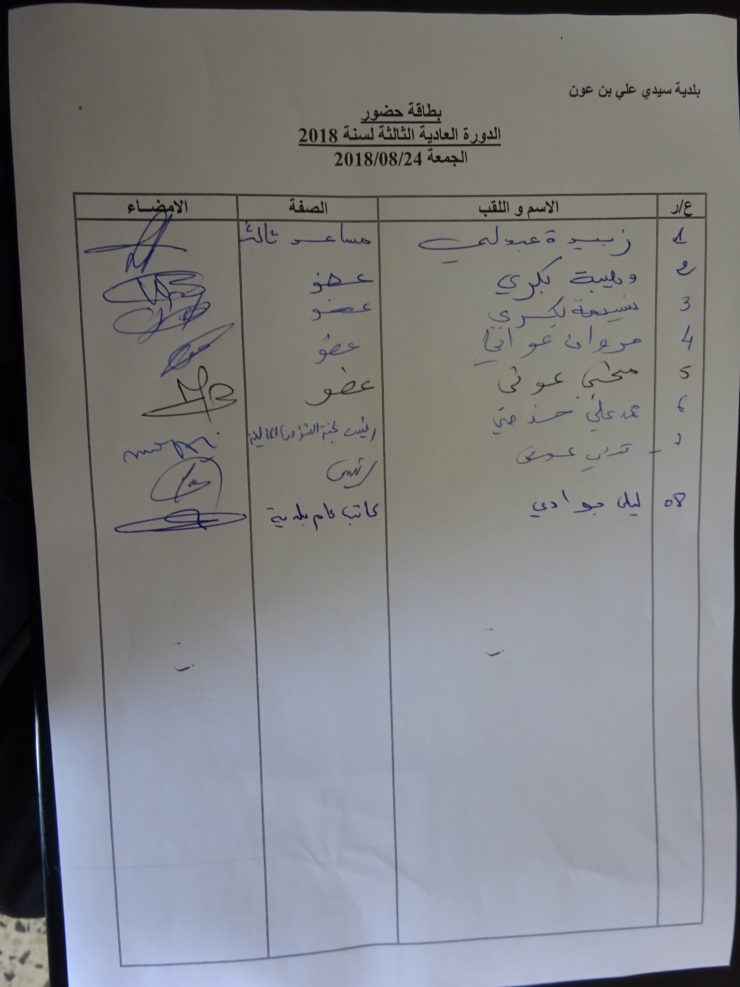 بلدية سيدي علي بن عون
بطاقة حضور
الدورة العادية الثالثة لسنة 2018
الجمعة 2018/08/24
ع/ر الاسم و اللقب الصفة الامضاء
1 زبيدة عبدلي مساعد ثالث
2 وهيبة بكري عضو
3 نسيمة بكري عضو
4 مروان عواني عضو
5 عوني عضو
6 محمد علي رئيس لجنة الشؤون المالية
رئيس
08 ليلى جوادي كاتب عام بلدية